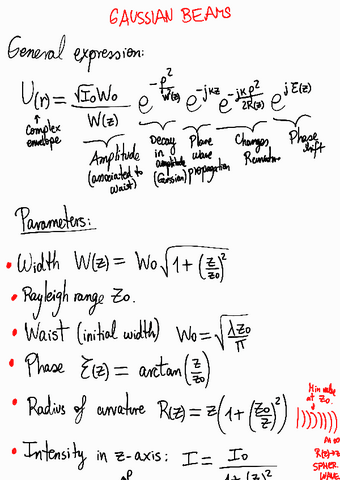 GAUSSIAN BEAMS
General expression:
U(r) = √I₀ W₀ / W(z) e^(-ρ²/W(z)) e^(-jkz) e^(-jkρ²/2R(z)) e^(jξ(z))
Complex envelope
Amplitude (associated to waist)
Decay in amplitude (Gaussian)
Plane wave propagation
Changes
Phase shift
Parameters:
• Width W(z) = W₀ √(1 + (z/z₀)²)
• Rayleigh range z₀.
• Waist (initial width) W₀ = √(λz₀/π)
• Phase ξ(z) = arctan(z/z₀)
• Radius of curvature R(z) = z(1 + (z₀/z)²)
Min value at z₀.
R(z)→z
SPHER.
WAVE
• Intensity in z-axis: I = I₀ / 1 + (z/z₀)²
of